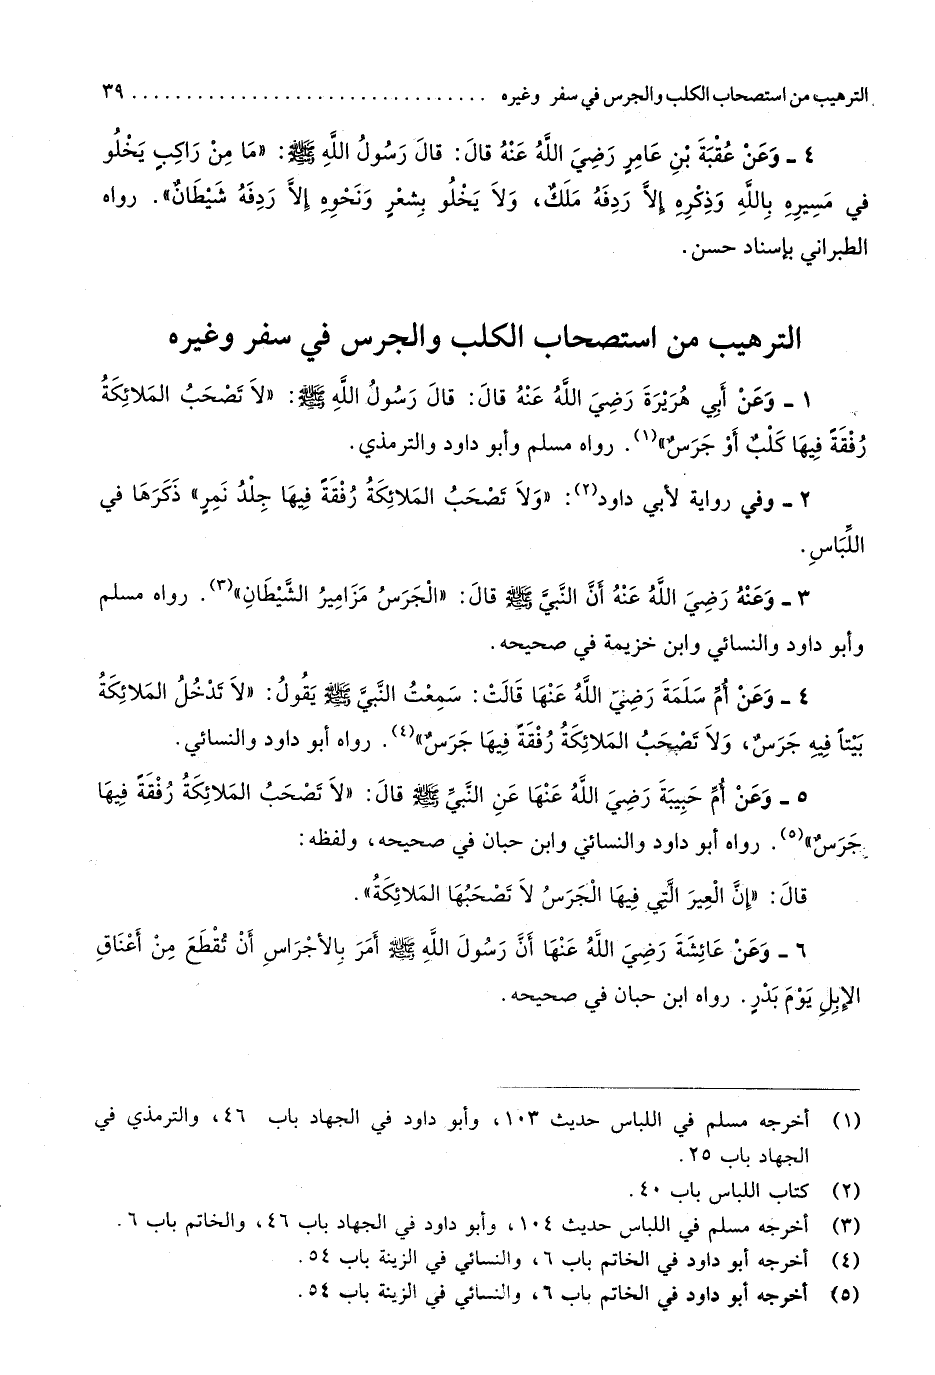 الترهيب من استصحاب الكلب والجرس في سفر وغيره ................................. ٣٩
٤ ـ وَعَنْ عُقْبَةَ بْنِ عَامِرٍ رَضِيَ اللَّهُ عَنْهُ قالَ: قالَ رَسُولُ اللَّهِ ﷺ: «مَا مِنْ رَاكِبٍ يَخْلُو
في مَسِيرِهِ بِاللَّهِ وَذِكْرِهِ إلاَّ رَدِفَهُ مَلَكٌ، وَلاَ يَخْلُو بِشعْرٍ وَنَحْوِهِ إلاَّ رَدِفَهُ شَيْطَانٌ». رواه
الطبراني بإسناد حسن.
الترهيب من استصحاب الكلب والجرس في سفر وغيره
١ ـ وَعَنْ أَبِي هُرَيْرَةَ رَضِيَ اللَّهُ عَنْهُ قالَ: قالَ رَسُولُ اللَّهِ ﷺ: «لاَ تَصْحَبُ المَلائِكَةُ
رُفْقَةً فِيهَا كَلْبٌ أَوْ جَرَسٌ»(١). رواه مسلم وأبو داود والترمذي.
٢ ـ وفي رواية لأبي داود(٢): «وَلاَ تَصْحَبُ المَلائِكَةُ رُفْقَةً فِيهَا جِلْدُ نَمِرٍ» ذَكَرَهَا في
اللِّبَاسِ.
٣ ـ وَعَنْهُ رَضِيَ اللَّهُ عَنْهُ أَنَّ النَّبِيَّ ﷺ قالَ: «الْجَرَسُ مَزَامِيرُ الشَّيْطَانِ»(٣). رواه مسلم
وأبو داود والنسائي وابن خزيمة في صحيحه.
٤ ـ وَعَنْ أُمِّ سَلَمَةَ رَضِيَ اللَّهُ عَنْهَا قَالَتْ: سَمِعْتُ النَّبِيَّ ﷺ يَقُولُ: «لاَ تَدْخُلُ المَلائِكَةُ
بَيْتاً فِيهِ جَرَسٌ، وَلاَ تَصْحَبُ المَلائِكَةُ رُفْقَةً فِيهَا جَرَسٌ»(٤). رواه أبو داود والنسائي.
٥ ـ وَعَنْ أُمِّ حَبِيبَةَ رَضِيَ اللَّهُ عَنْهَا عَنِ النَّبِيِّ ﷺ قالَ: «لاَ تَصْحَبُ المَلائِكَةُ رُفْقَةً فِيهَا
جَرَسٌ»(٥). رواه أبو داود والنسائي وابن حبان في صحيحه، ولفظه:
قالَ: «إنَّ الْعِيرَ الَّتِي فِيهَا الْجَرَسُ لاَ تَصْحَبُهَا المَلائِكَةُ».
٦ ـ وَعَنْ عَائِشَةَ رَضِيَ اللَّهُ عَنْهَا أَنَّ رَسُولَ اللَّهِ ﷺ أَمَرَ بِالأجْرَاسِ أَنْ تُقْطَعَ مِنْ أَعْنَاقِ
الإبِلِ يَوْمَ بَدْرٍ. رواه ابن حبان في صحيحه.
(١) أخرجه مسلم في اللباس حديث ١٠٣، وأبو داود في الجهاد باب ٤٦، والترمذي في
الجهاد باب ٢٥.
(٢) كتاب اللباس باب ٤٠.
(٣) أخرجه مسلم في اللباس حديث ١٠٤، وأبو داود في الجهاد باب ٤٦، والخاتم باب ٦.
(٤) أخرجه أبو داود في الخاتم باب ٦، والنسائي في الزينة باب ٥٤.
(٥) أخرجه أبو داود في الخاتم باب ٦، والنسائي في الزينة باب ٥٤.